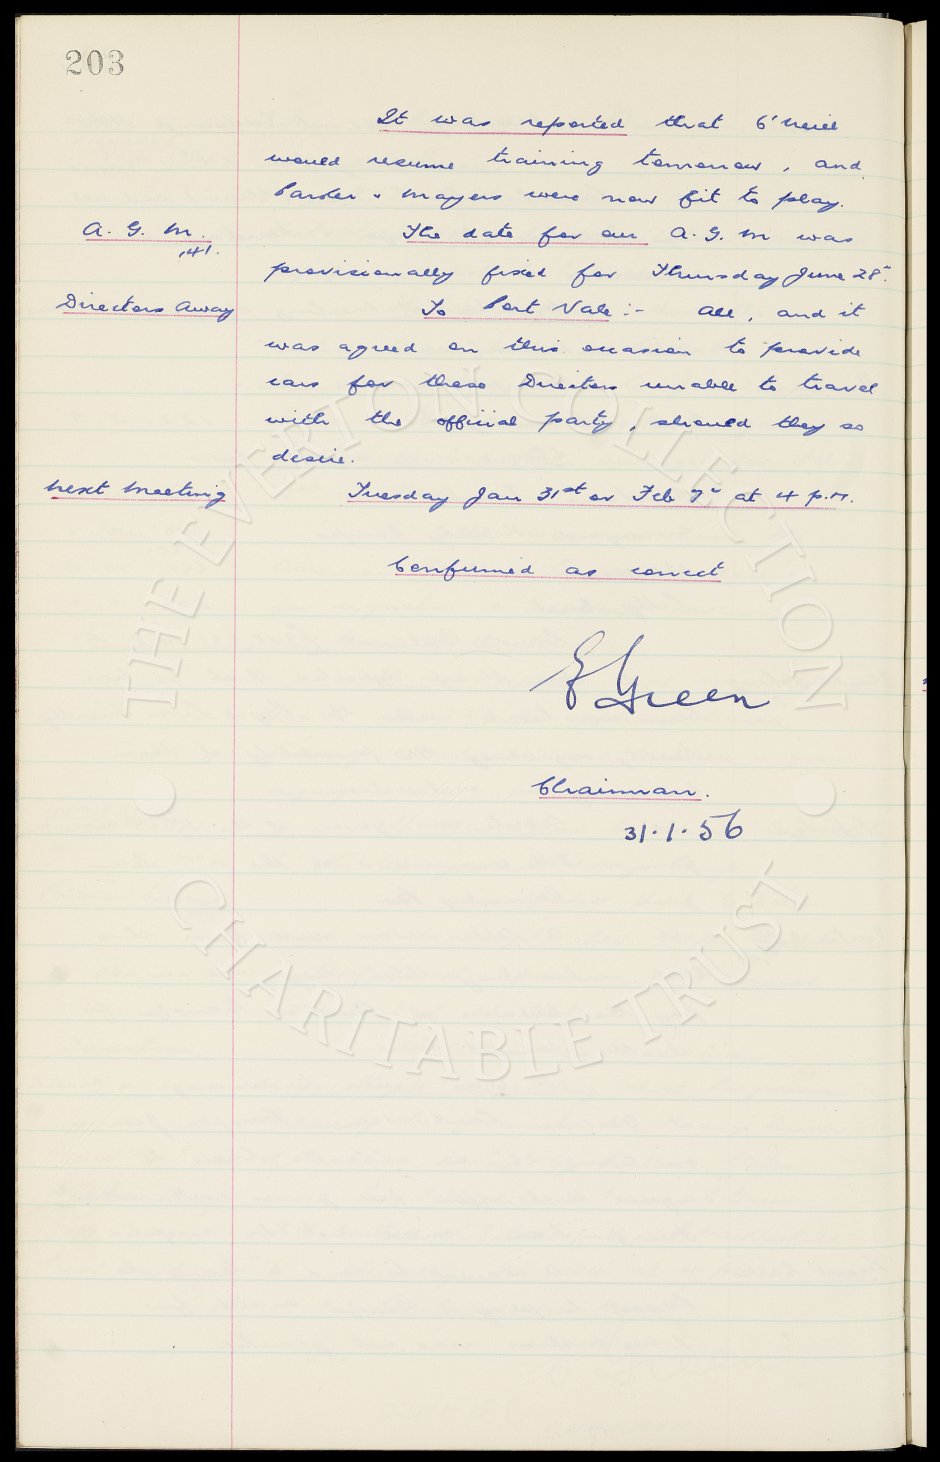 203
It was reported that O'Neill
would resume training tomorrow, and
Parker & Mayers were now fit to play.
A. G. M. The date for our A. G. M was
141.
provisionally fixed for Thursday June 28".
Directors Away To Port Vale :- All, and it
was agreed on this occasion to provide
cars for those Directors unable to travel
with the official party, should they so
desire.
Next Meeting Tuesday Jan 31st or Feb 7" at 4 p.m.
Confirmed as correct
E Green
Chairman.
31.1.56
THE EVERTON COLLECTION
CHARITABLE TRUST